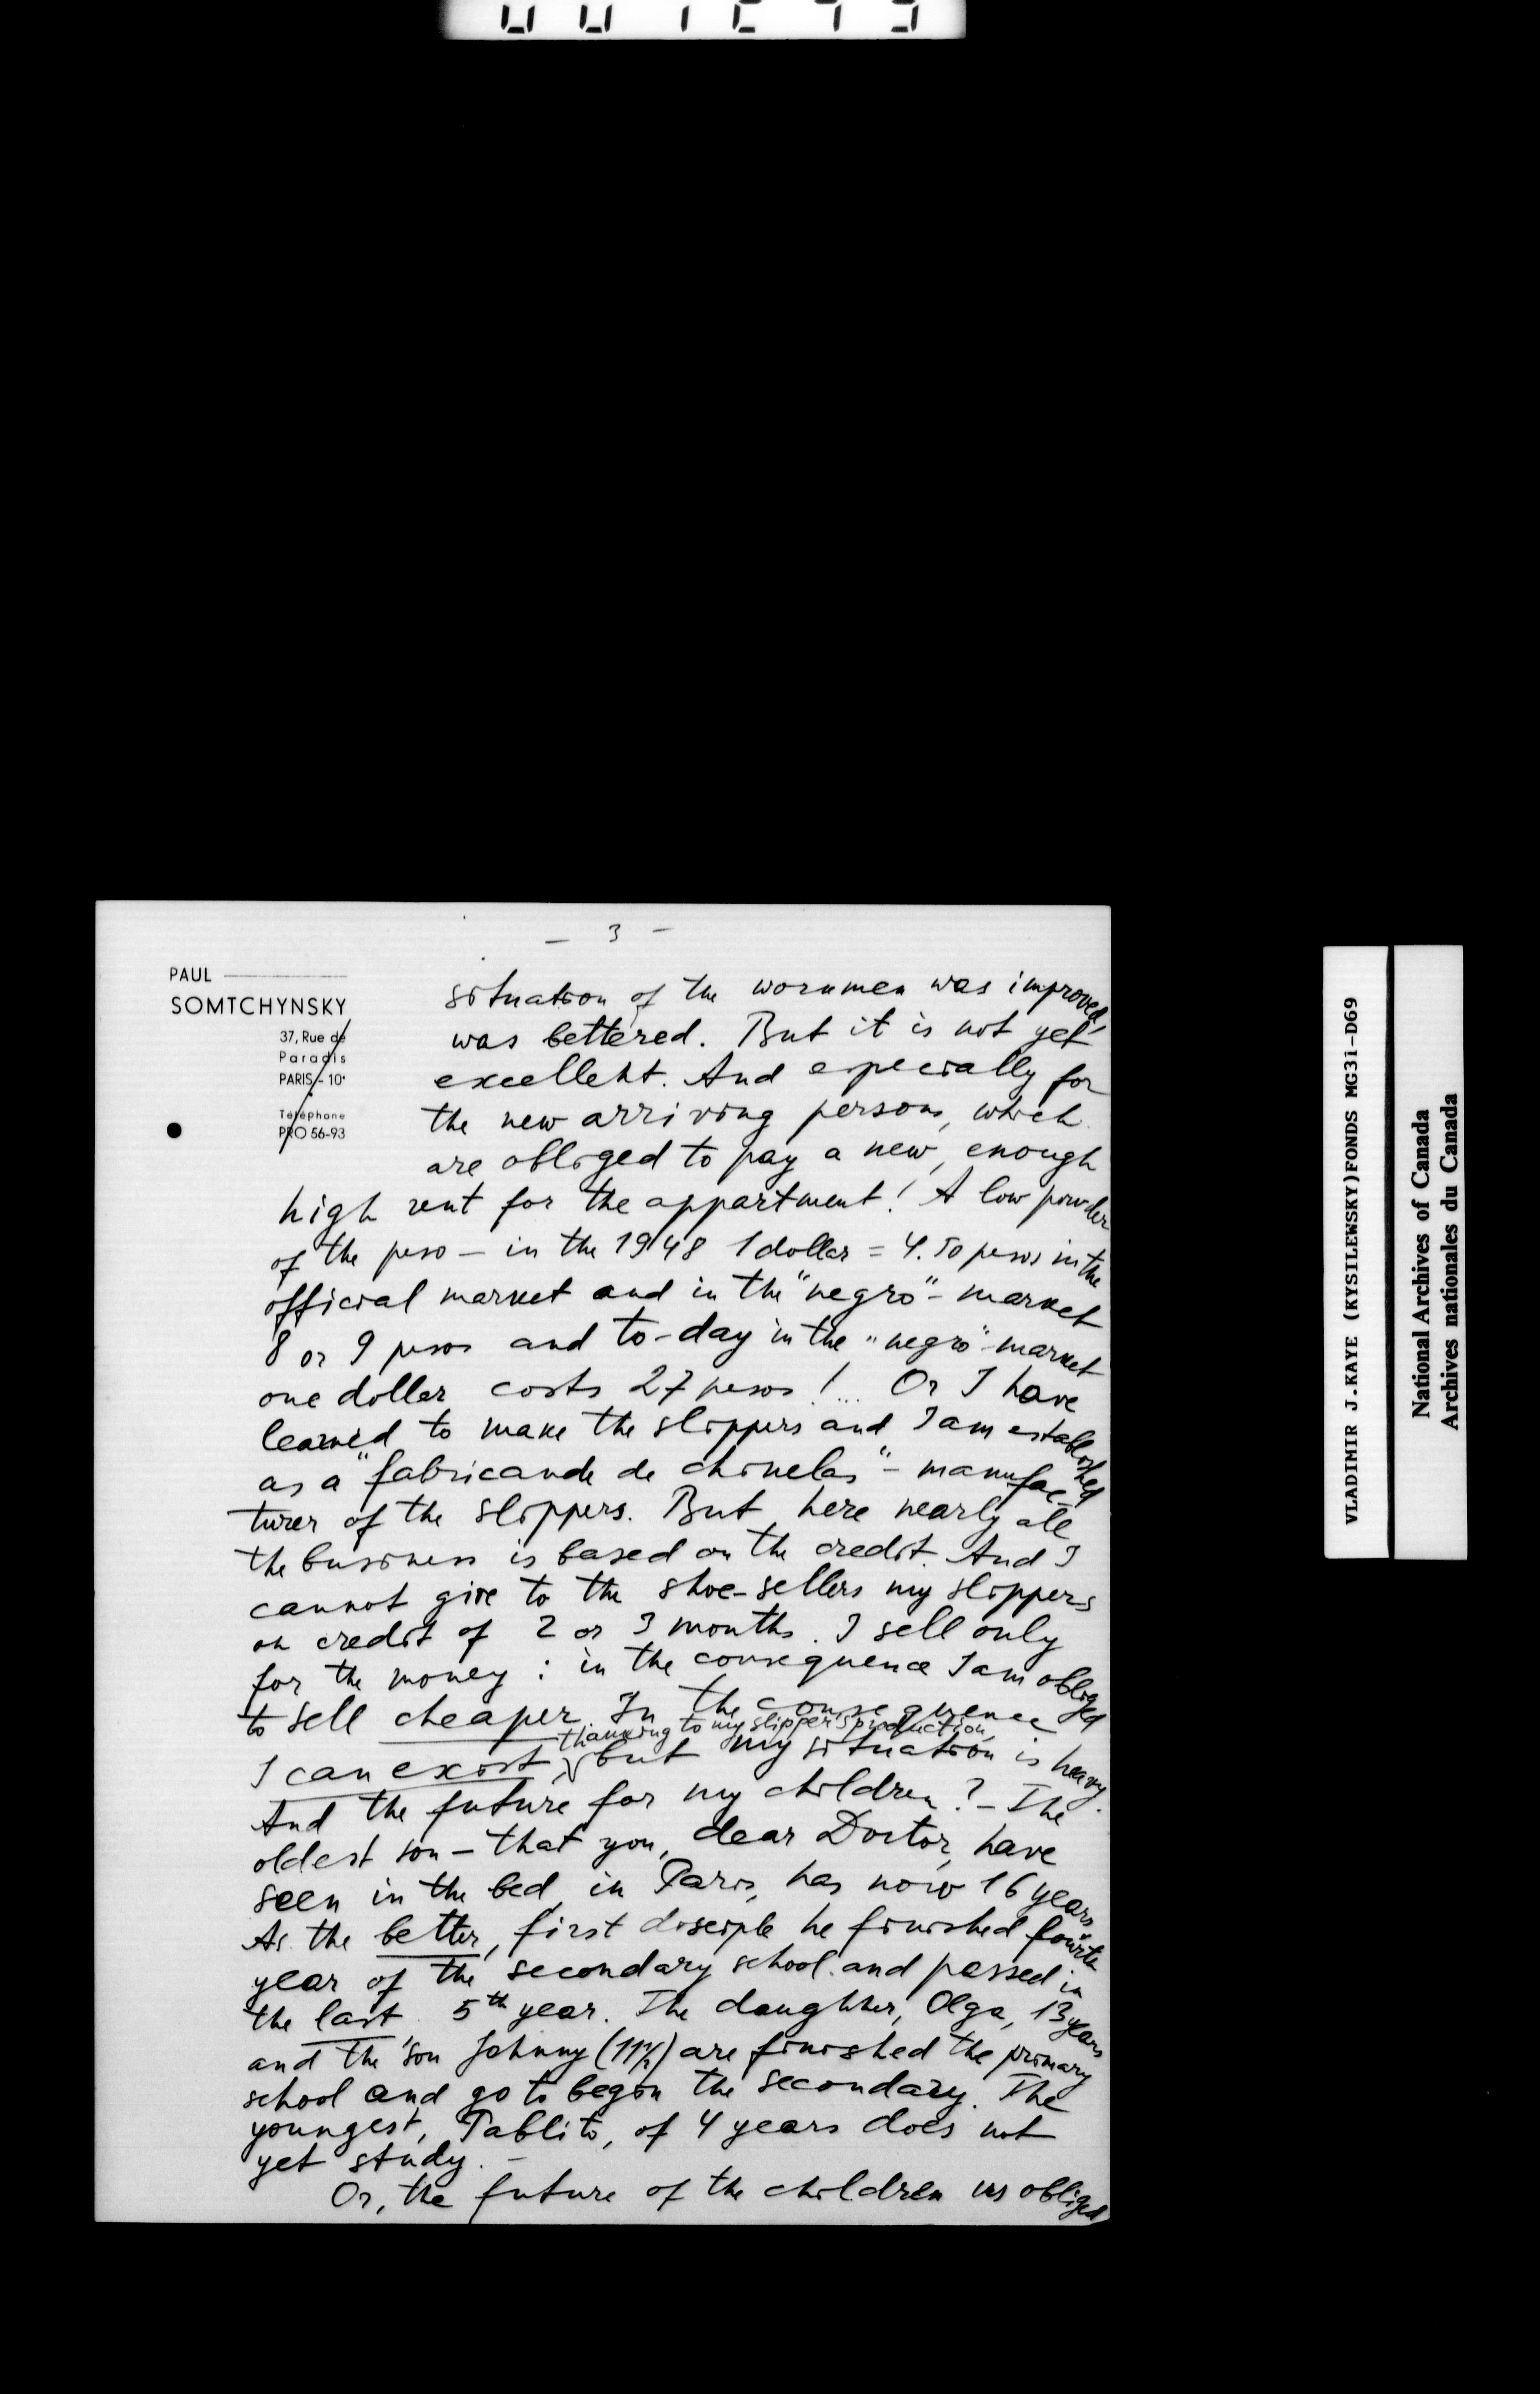 - 3 -
PAUL
SOMTCHYNSKY
37, Rue de
Paradis
PARIS - 10e
Téléphone
PRO 56-93
situation of the workmen was improved,
was bettered. But it is not yet
excellent. And especially for
the new arriving persons, which
are obliged to pay a new, enough
high rent for the appartment! A low powder
of the peso - in the 1948 1 dollar = 4.50 pesos in the
official market and in the "negro" - market
8 or 9 pesos and to-day in the "negro" - market
one dollar costs 27 pesos!... Or I have
learned to make the slippers and I am established
as a "fabricande de chinelas" - manufac-
turer of the slippers. But here nearly all
the business is based on the credit. And I
cannot give to the shoe-sellers my slippers
on credit of 2 or 3 months. I sell only
for the money : in the consequence I am obliged
to sell cheaper. In the consequence
thanking to my slipper's production,
I can exist, but my situation is heavy.
And the future for my children? - The
oldest son - that you, dear Doctor, have
seen in the bed, in Paris, has now 16 years.
As the better, first disciple he finished fourth
year of the secondary school and passed in
the last 5th year. The daughter, Olga, 13 years
and the son Johnny (11 1/2) are finished the primary
school and go to begin the secondary. The
youngest, Pablito, of 4 years does not
yet study. -
Or, the future of the children us obliged
VLADIMIR J.KAYE (KYSILEWSKY)FONDS MG31-D69
National Archives of Canada
Archives nationales du Canada